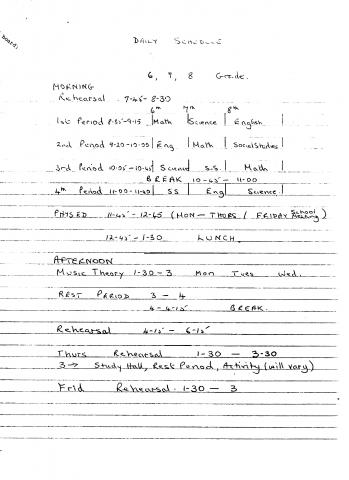 board)
DAILY SCHEDULE
6, 7, 8 Grade.
MORNING
Rehearsal 7-45-8-30
6th 7th 8th
1st Period 8-35-9-15 | Math | Science | English |
2nd Period 9-20-10-00 | Eng | Math | Social Studies |
3rd Period 10-05-10-45 | Science | S.S. | Math |
BREAK 10-45 - 11-00
4th Period 11-00-11-40 | SS | Eng | Science |
PHYSED 11-45-12-45 (MON - THURS / FRIDAY School Meeting)
12-45-1-30 LUNCH
AFTERNOON
Music Theory 1-30-3 Mon Tues Wed.
REST PERIOD 3 - 4
4-4-15 BREAK.
Rehearsal 4-15 - 6-15
Thurs Rehearsal 1-30 - 3-30
3 → Study Hall, Rest Period, Activity (will vary)
Frid Rehearsal. 1-30 - 3